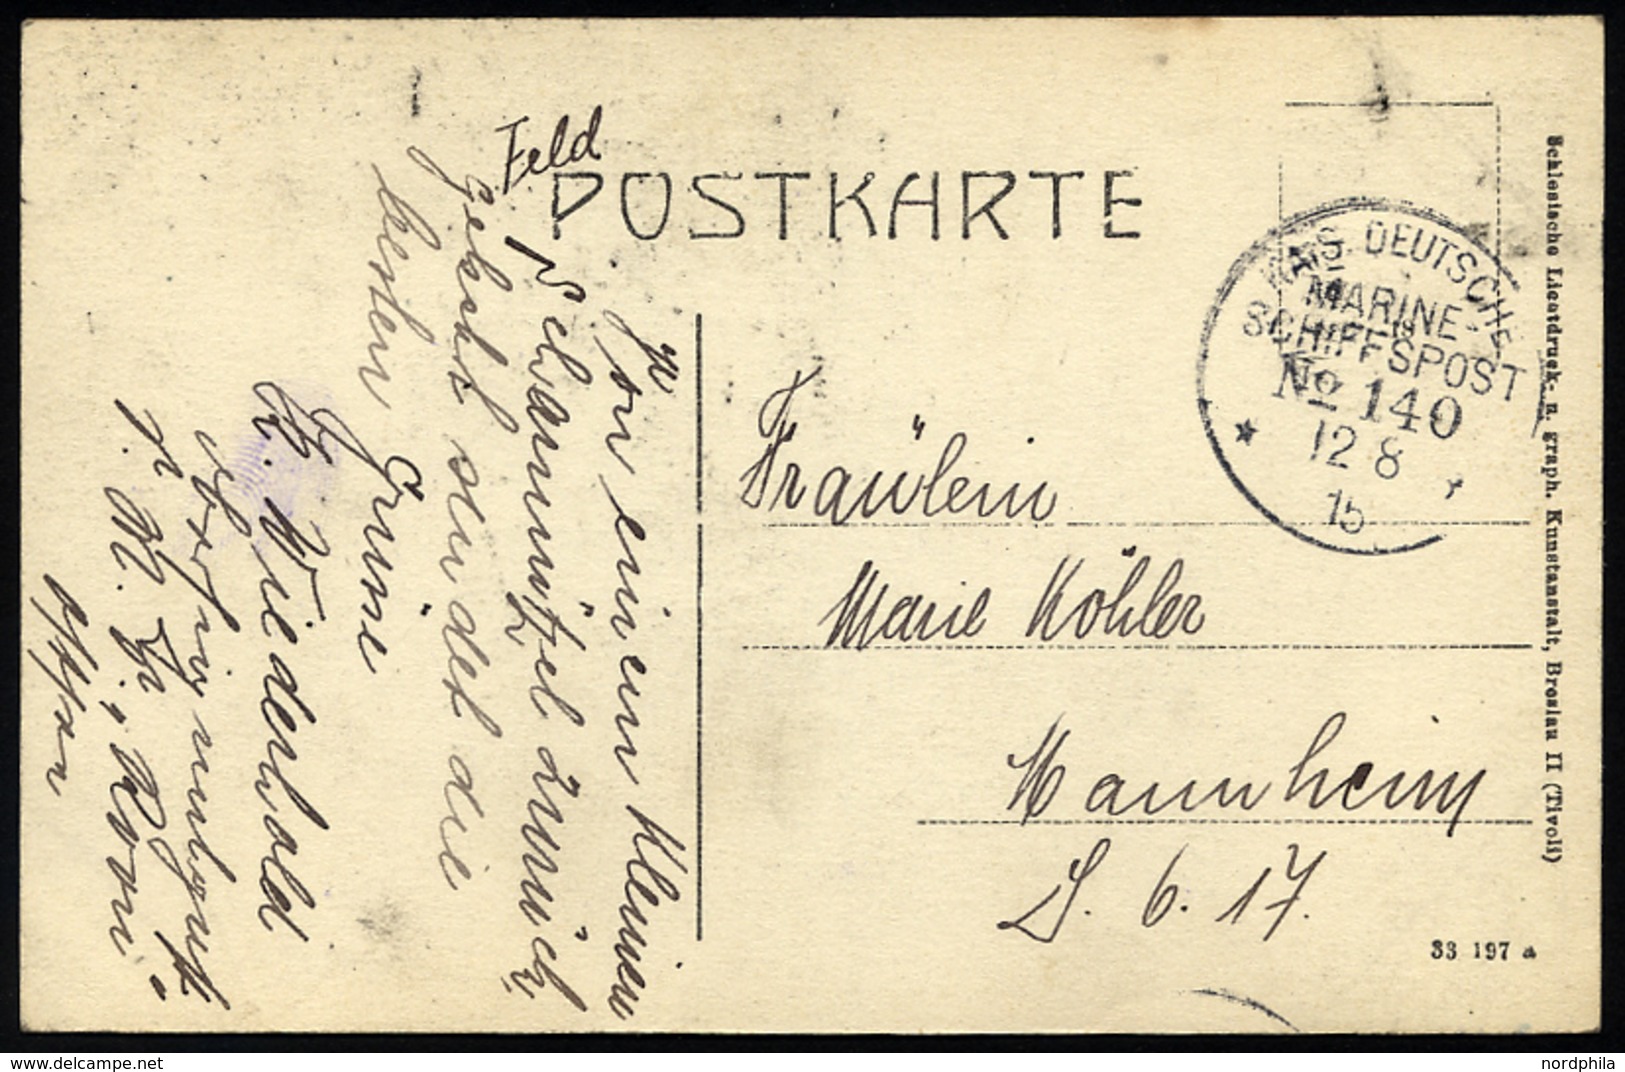 Feld
POSTKARTE
KAIS. DEUTSCHE
MARINE-
SCHIFFSPOST
No 140
12 8
15
Von einem kleinen
Scharmützel zurück
gekehrt sendet die
besten
Grüße
E. Wiedenhold
Fräulein
Marie Köhler
Mannheim
S. 6. 17.
33 197 a
Schlesische Lichtdruck- u. graph. Kunstanstalt, Breslau II (Tivoli)
nordphila